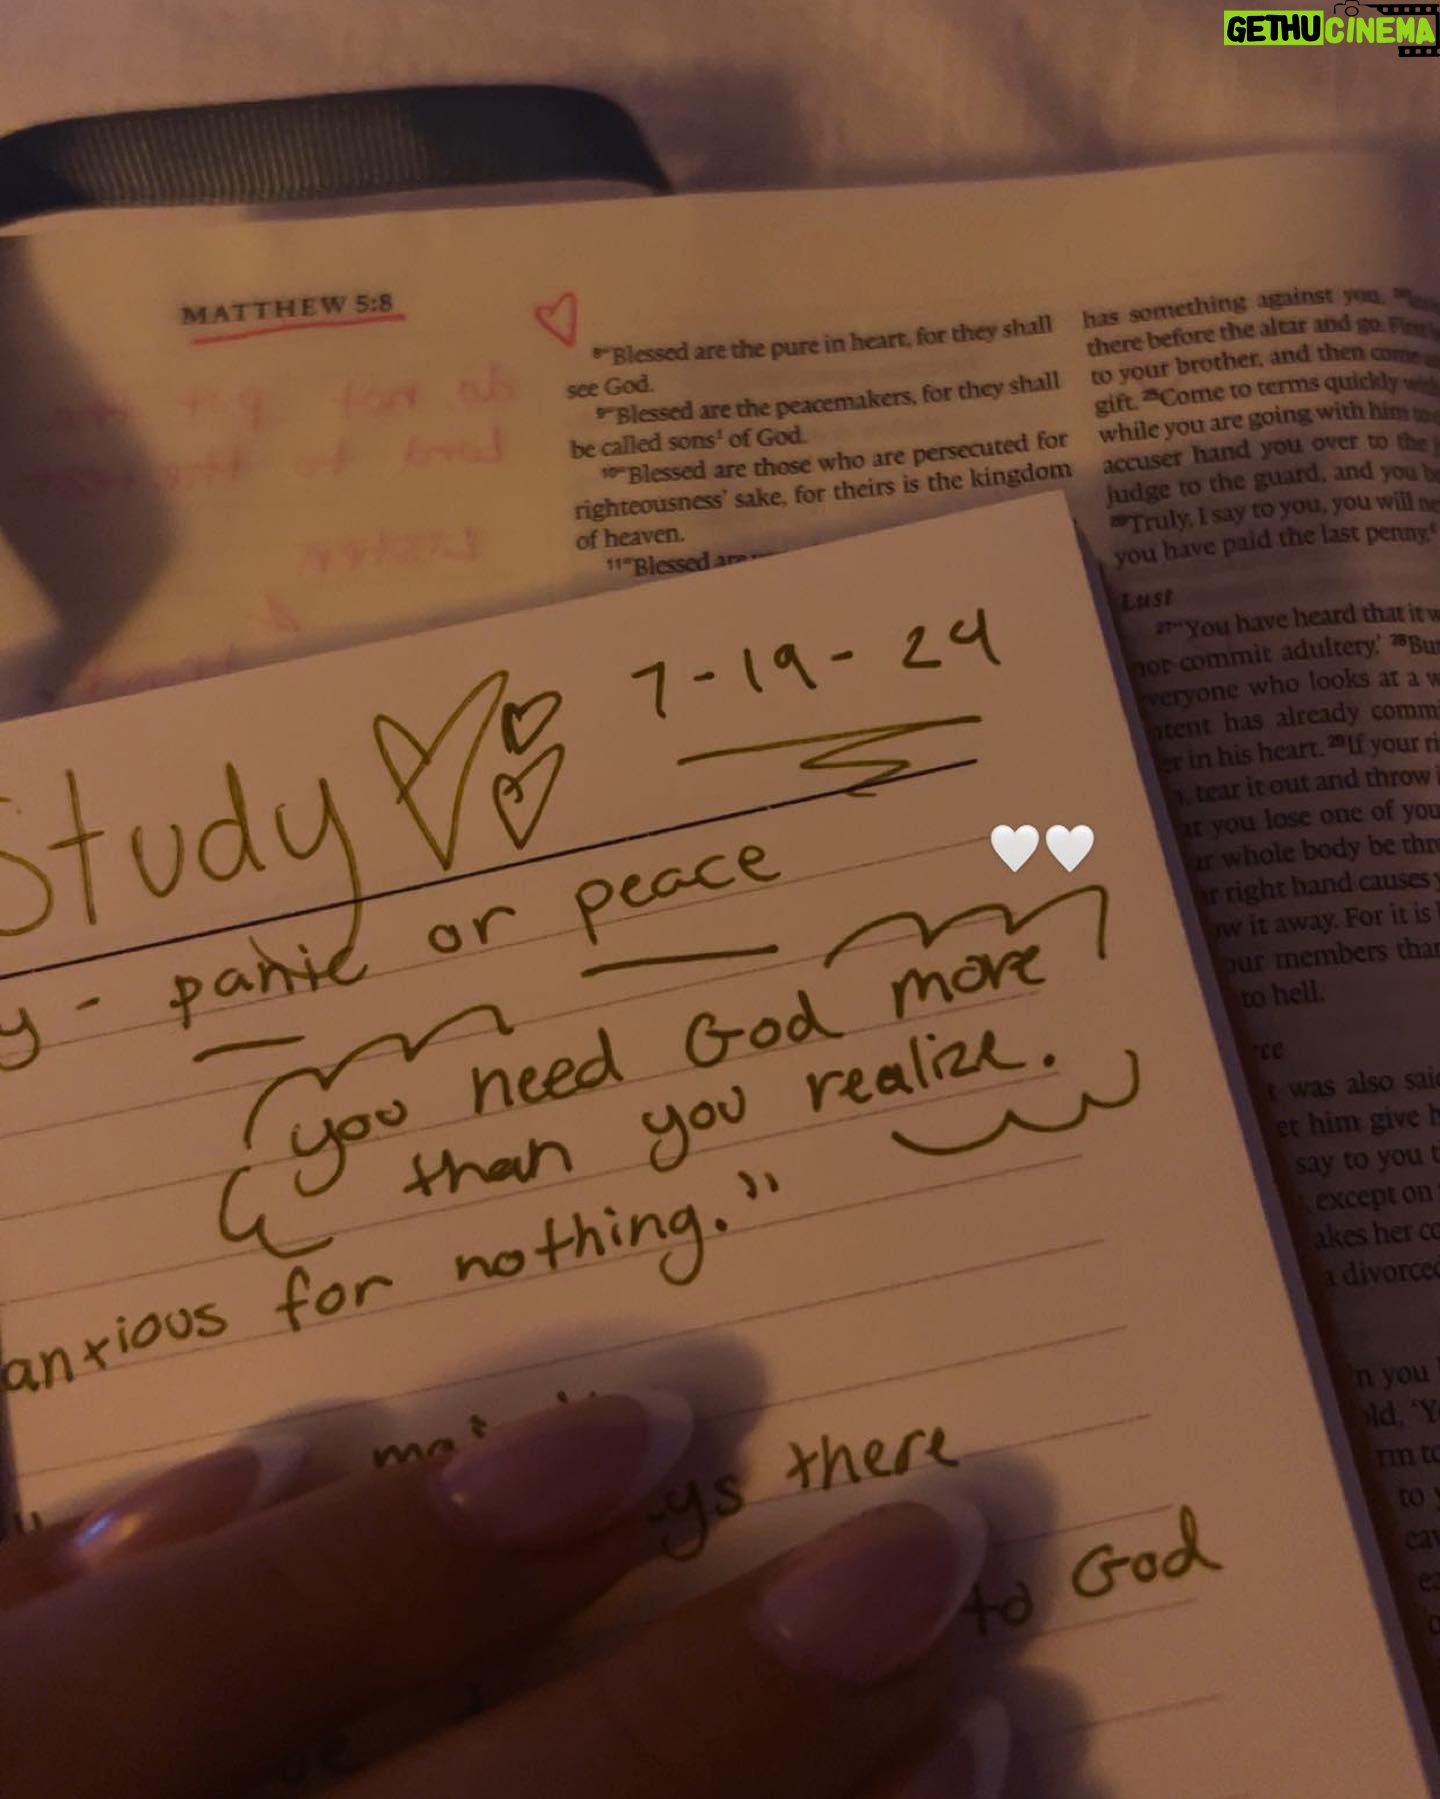 GETHUCINEMA
MATTHEW 5:8
do not put the
Lord to the
Listen
8"Blessed are the pure in heart, for they shall
see God.
9"Blessed are the peacemakers, for they shall
be called sons¹ of God.
10"Blessed are those who are persecuted for
righteousness' sake, for theirs is the kingdom
of heaven.
11"Blessed are
has something against you,
there before the altar and go. First
to your brother, and then come
gift. 25Come to terms quickly
while you are going with him
accuser hand you over to the
judge to the guard, and you
26Truly, I say to you, you will
you have paid the last penny.
Lust
27"You have heard that it
not commit adultery.' 28But
everyone who looks at a
intent has already
in his heart. 29If your
tear it out and throw
you lose one of
whole body be
right hand causes
it away. For it is
members than
to hell.
was also
him give
say to you
except on
her
a divorced
you
to
Study 7-19-24
y - panic or peace
you need God more
than you realize.
anxious for nothing."
ys there
to God